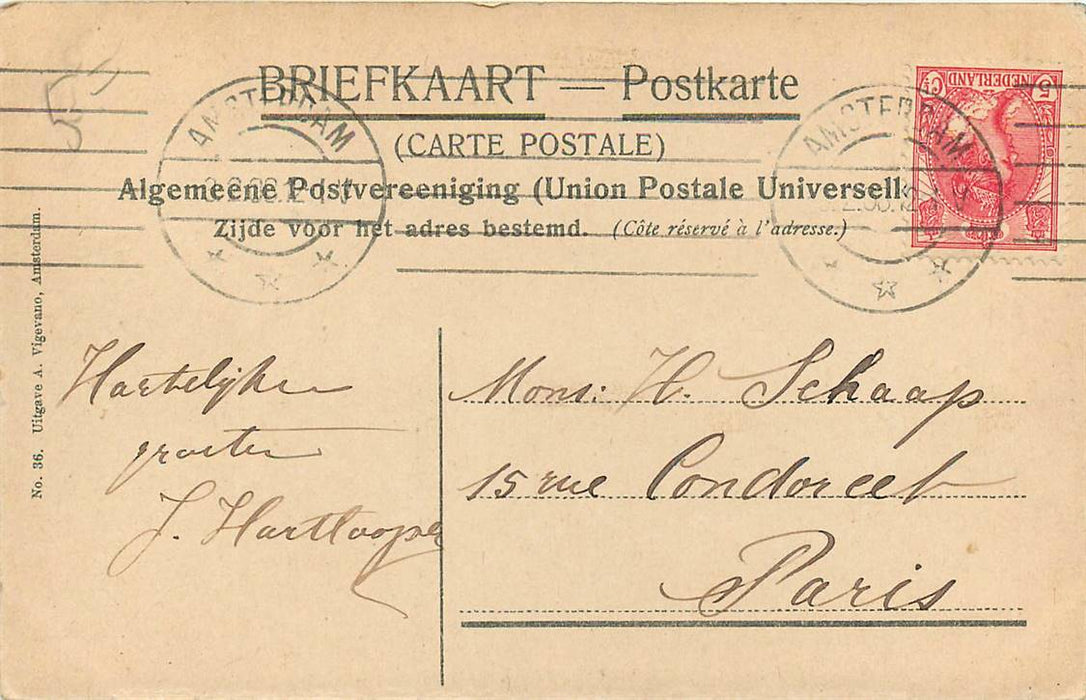 BRIEFKAART — Postkarte
(CARTE POSTALE)
Algemeene Postvereeniging (Union Postale Universelle
Zijde voor het adres bestemd. (Côte réservé à l'adresse.)
AMSTERDAM
AMSTERDAM
5 Ct
NEDERLAND
5
No. 36. Uitgave A. Vigevano, Amsterdam.
Hartelijke
groeten
J. Hartlooper
Mons: H. Schaap
15 rue Condorcet
Paris